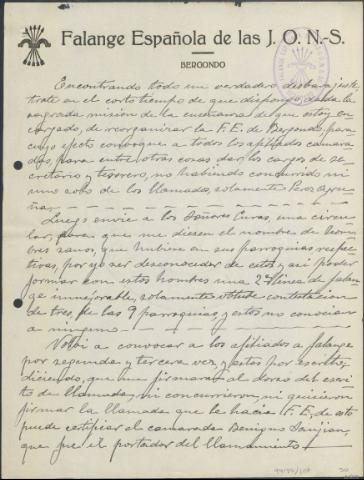 Falange Española de las J. O. N.-S.
BERGONDO
Encontrando todo un verdadero desbarajuste,
traté en el corto tiempo de que dispongo, dada la
sagrada misión de la enseñanza de que estoy en-
cargado, de reorganizar la F.E. de Bergondo, para
cuyo efecto convoqué a todos los afiliados camara-
das, para entre otras cosas dar los cargos de se-
cretario y tesorero, no habiendo concurrido ni
uno solo de los llamados, solamente Perez
Luego envié a los Señores Curas, una circu-
lar, para que me diesen el nombre de hom-
bres sanos, que hubiere en sus parroquias respec-
tivas, por yo ser desconocedor de estos, y así poder
formar con estos hombres una 2ª línea de falan-
ge inmejorable, solamente obtuve contestación
de tres, de las 9 parroquias y estos no conocían
a ninguno
Volví a convocar a los afiliados a falange
por segunda y tercera vez, y estos por escrito,
diciendo, que me firmaran al dorso del escri-
to de llamada, ni concurrieron, ni quisieron
firmar la llamada que le hacía F.E, de esto
puede certificar el camarada Benigno Sanjian,
que fue el portador del llamamiento